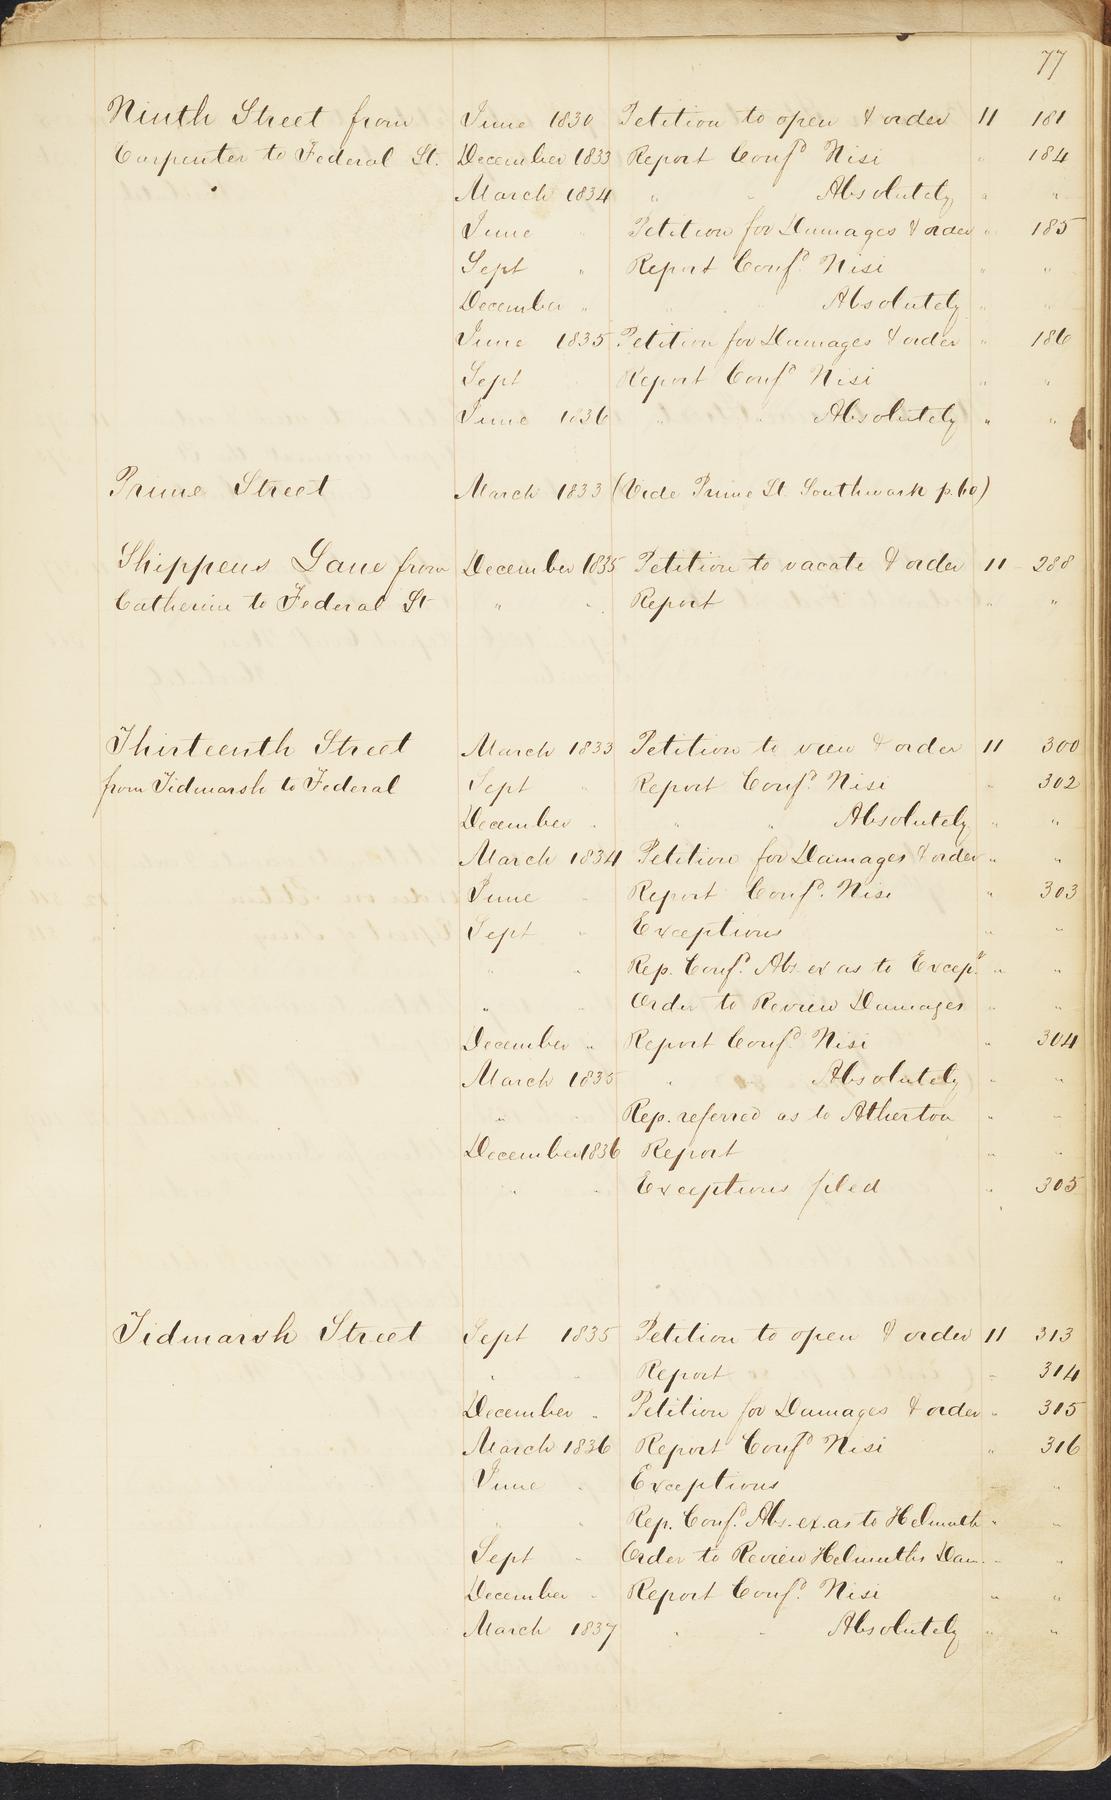 77
Ninth Street from June 1830 Petition to open & order 11 181
Carpenter to Federal St. December 1833 Report Conf.d Nisi " 184
March 1834 " " Absolutely " "
June " Petition for Damages & order " 185
Sept " Report Conf.d Nisi " "
December " " " Absolutely " "
June 1835 Petition for Damages & order " 186
Sept " Report Conf.d Nisi " "
June 1836 " " Absolutely " "
Prime Street March 1833 (Vide Prime St. Southwark p. 60)
Shippens Lane from December 1835 Petition to vacate & order 11 288
Catherine to Federal St " " Report " "
Thirteenth Street March 1833 Petition to view & order 11 300
from Tidmarsh to Federal Sept " Report Conf.d Nisi " 302
December " " " Absolutely " "
March 1834 Petition for Damages & order " "
June " Report Conf.d Nisi " 303
Sept " Exceptions " "
" " Rep. Conf.d Abs. ex as to Excep.ns " "
" " Order to Review Damages " "
December " Report Conf.d Nisi " 304
March 1835 " " Absolutely " "
" " Rep. referred as to Atherton " "
December 1836 Report " "
" " Exceptions filed " 305
Tidmarsh Street Sept 1835 Petition to open & order 11 313
" " Report " 314
December " Petition for Damages & order " 315
March 1836 Report Conf.d Nisi " 316
June " Exceptions " "
" " Rep. Conf.d Abs. ex. as to Helmuth " "
Sept " Order to Review Helmuths Dam. " "
December " Report Conf.d Nisi " "
March 1837 " " Absolutely " "